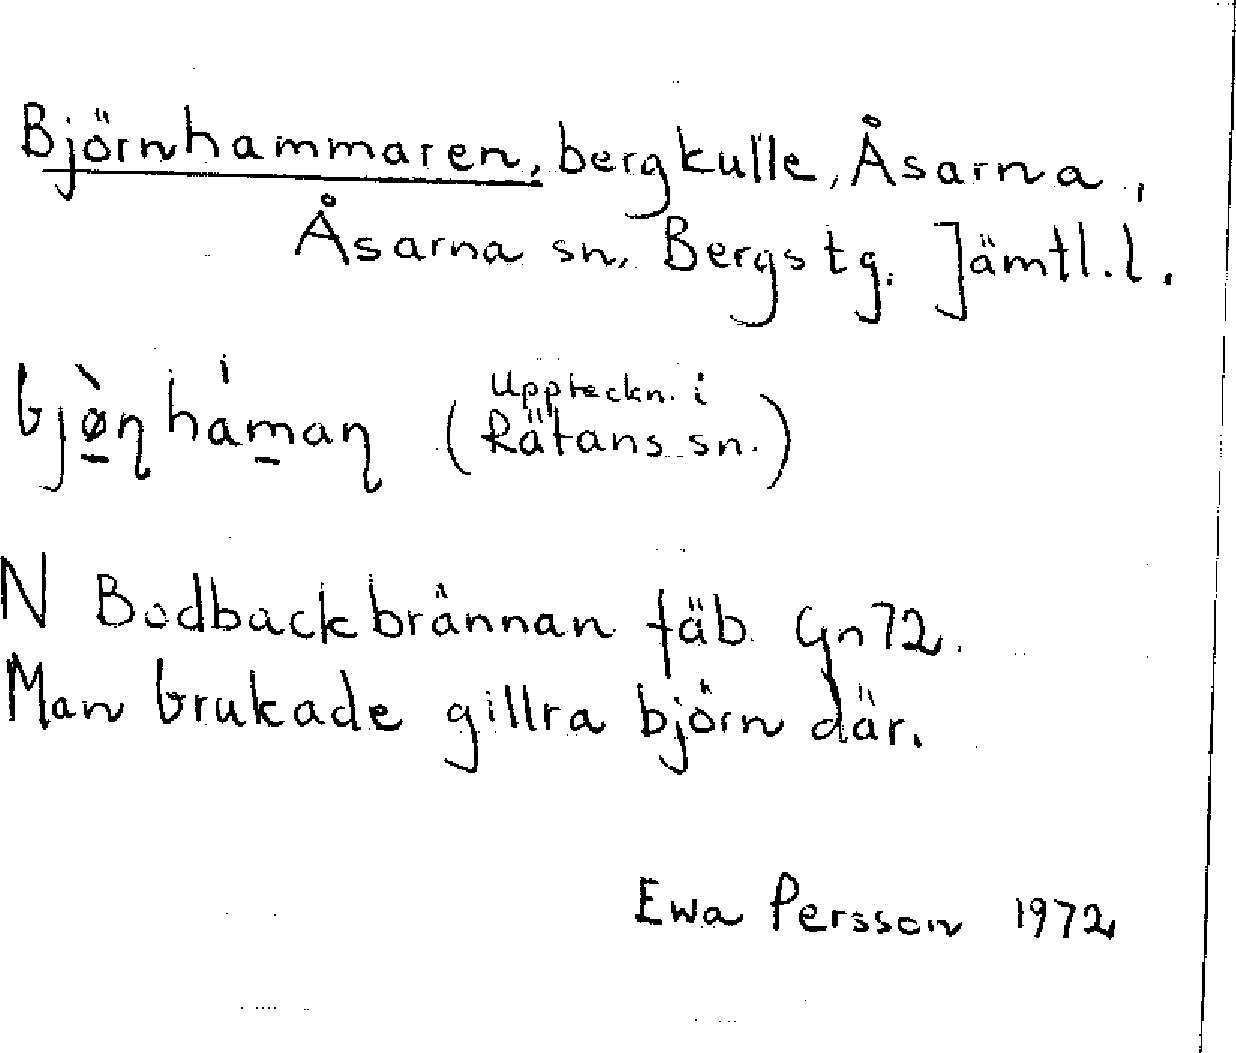 Björnhammaren, bergkulle, Åsarna,
Åsarna sn, Bergs tg. Jämtl.l.
bjø̠̀ɳhám̠aɳ (Uppteckn. i Rätans sn.)
N Bodbackbrännan fäb. Gn72.
Man brukade gillra björn där.
Ewa Persson 1972